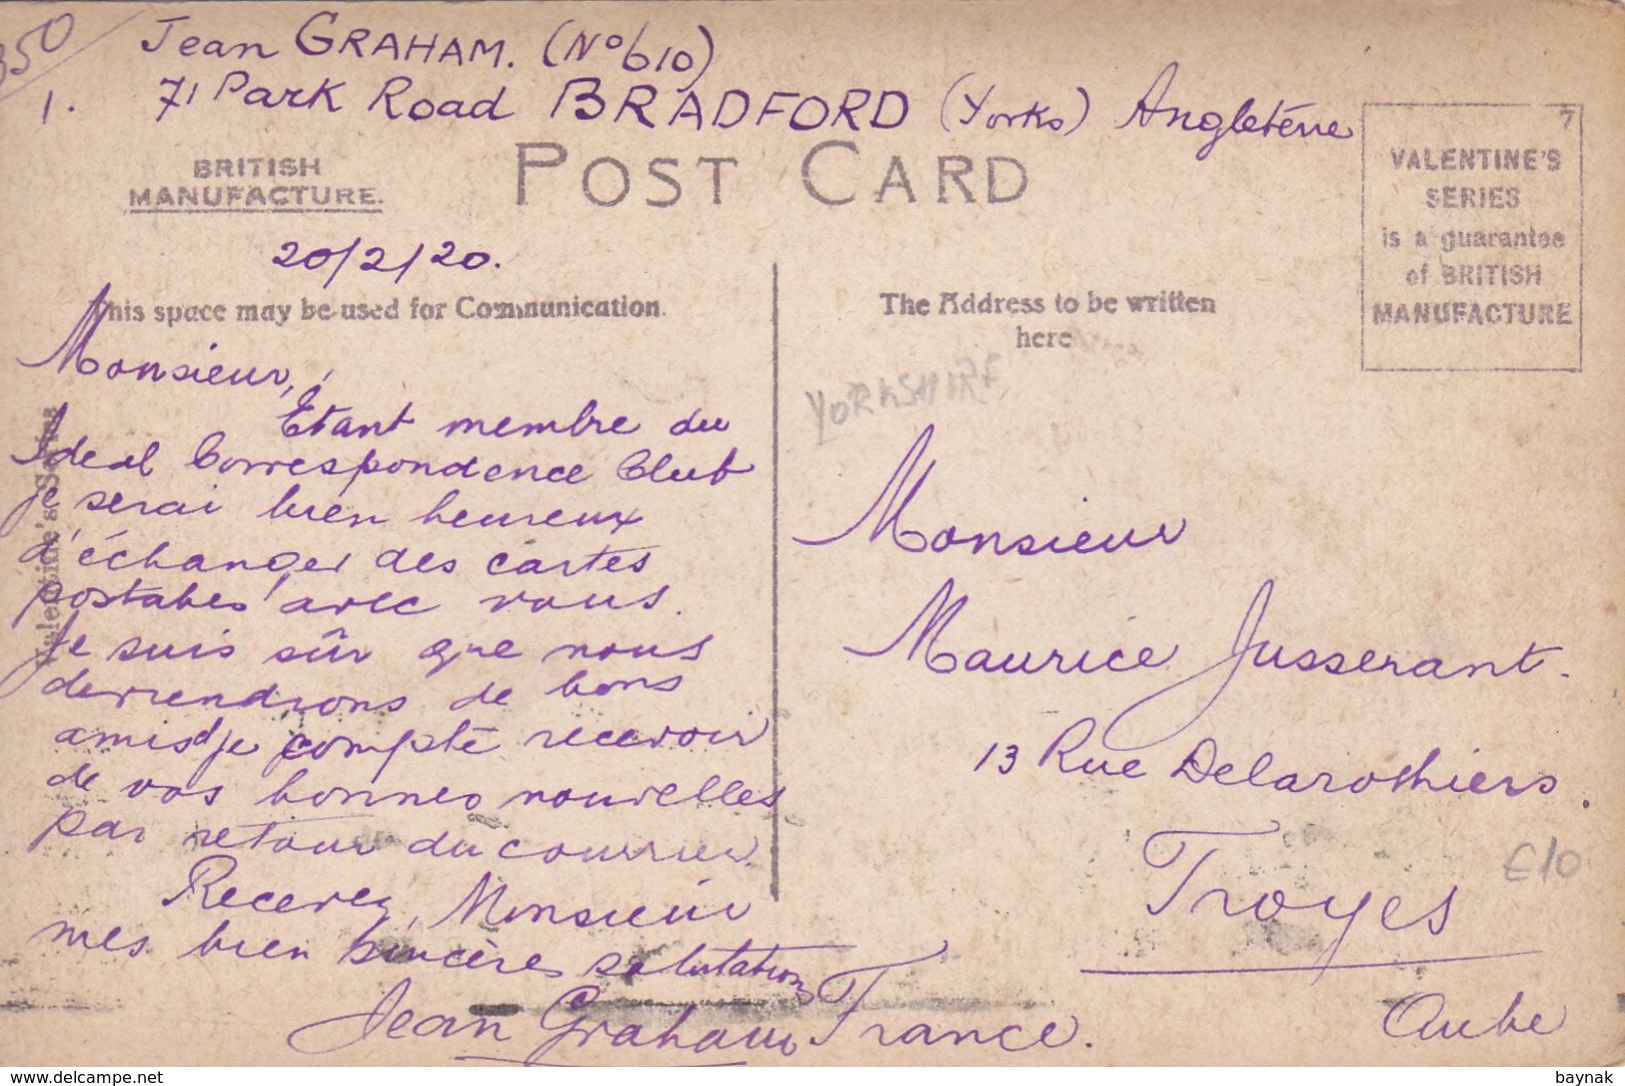 350
Jean GRAHAM. (No 610)
1. 71 Park Road BRADFORD (Yorks) Angleterre
BRITISH
MANUFACTURE.
POST CARD
7
VALENTINE'S
SERIES
is a guarantee
of BRITISH
MANUFACTURE
20/2/20.
This space may be used for Communication.
The Address to be written
here
YORKSHIRE
Valentine's Series
Monsieur,
Etant membre du
Ideal Correspondence Club
je serai bien heureux
d'échanger des cartes
postales avec vous.
Je suis sûr que nous
deviendrons de bons
amis je compte recevoir
de vos bonnes nouvelles
par retour du courrier.
Recevez, Monsieur
mes bien sincères salutations
Jean Graham
Monsieur
Maurice Jusserant.
13 Rue Delarothiers.
Troyes
£10
Aube
France.
baynak